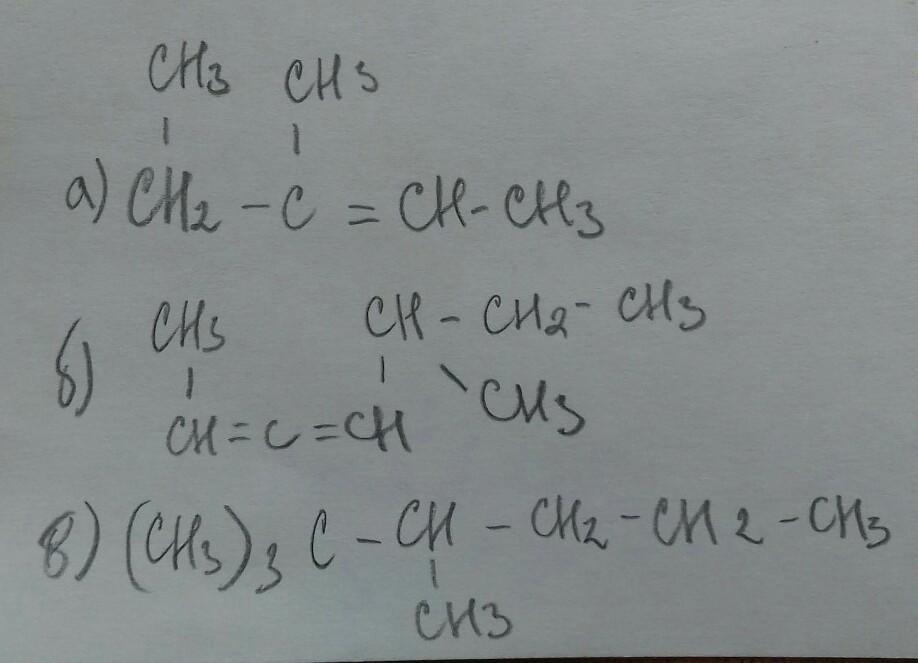 CH3 CH3
а) CH2 - C = CH - CH3
CH3 CH - CH2 - CH3
б) CH = C = CH CH3
в) (CH3)3 C - CH - CH2 - CH2 - CH3
CH3